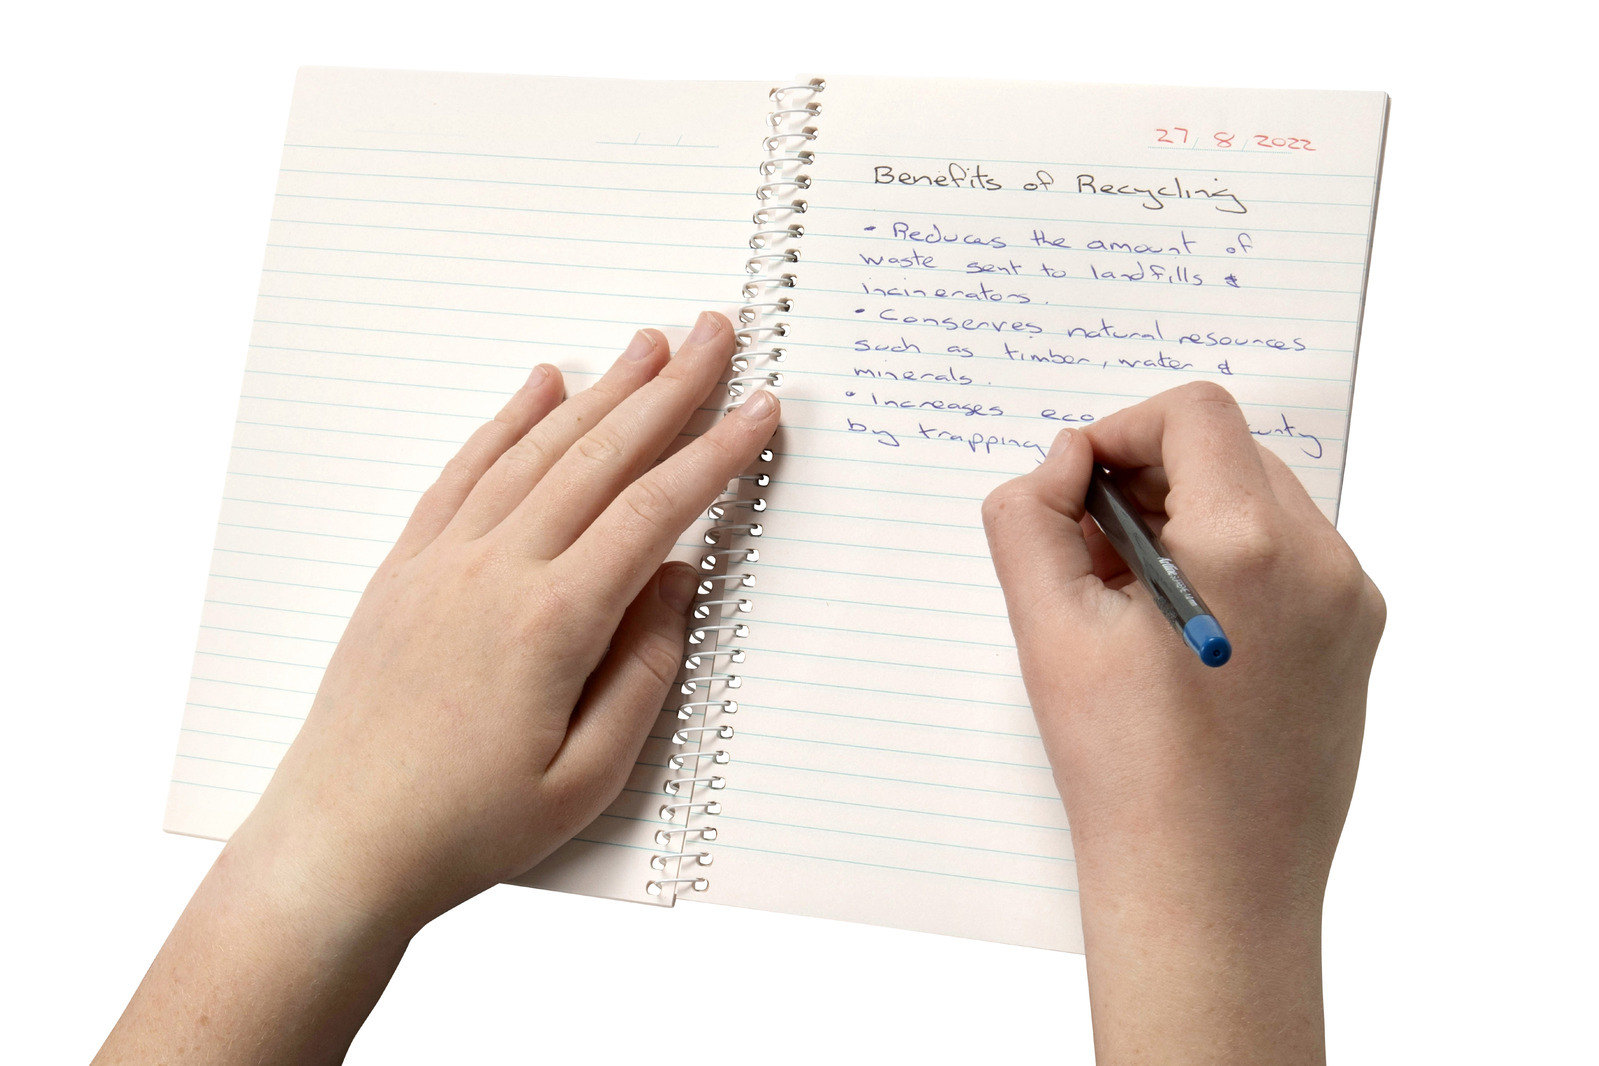 27/8/2022
Benefits of Recycling
• Reduces the amount of
waste sent to landfills &
incinerators.
• Conserves natural resources
such as timber, water &
minerals.
• Increases
by trapping
Artline